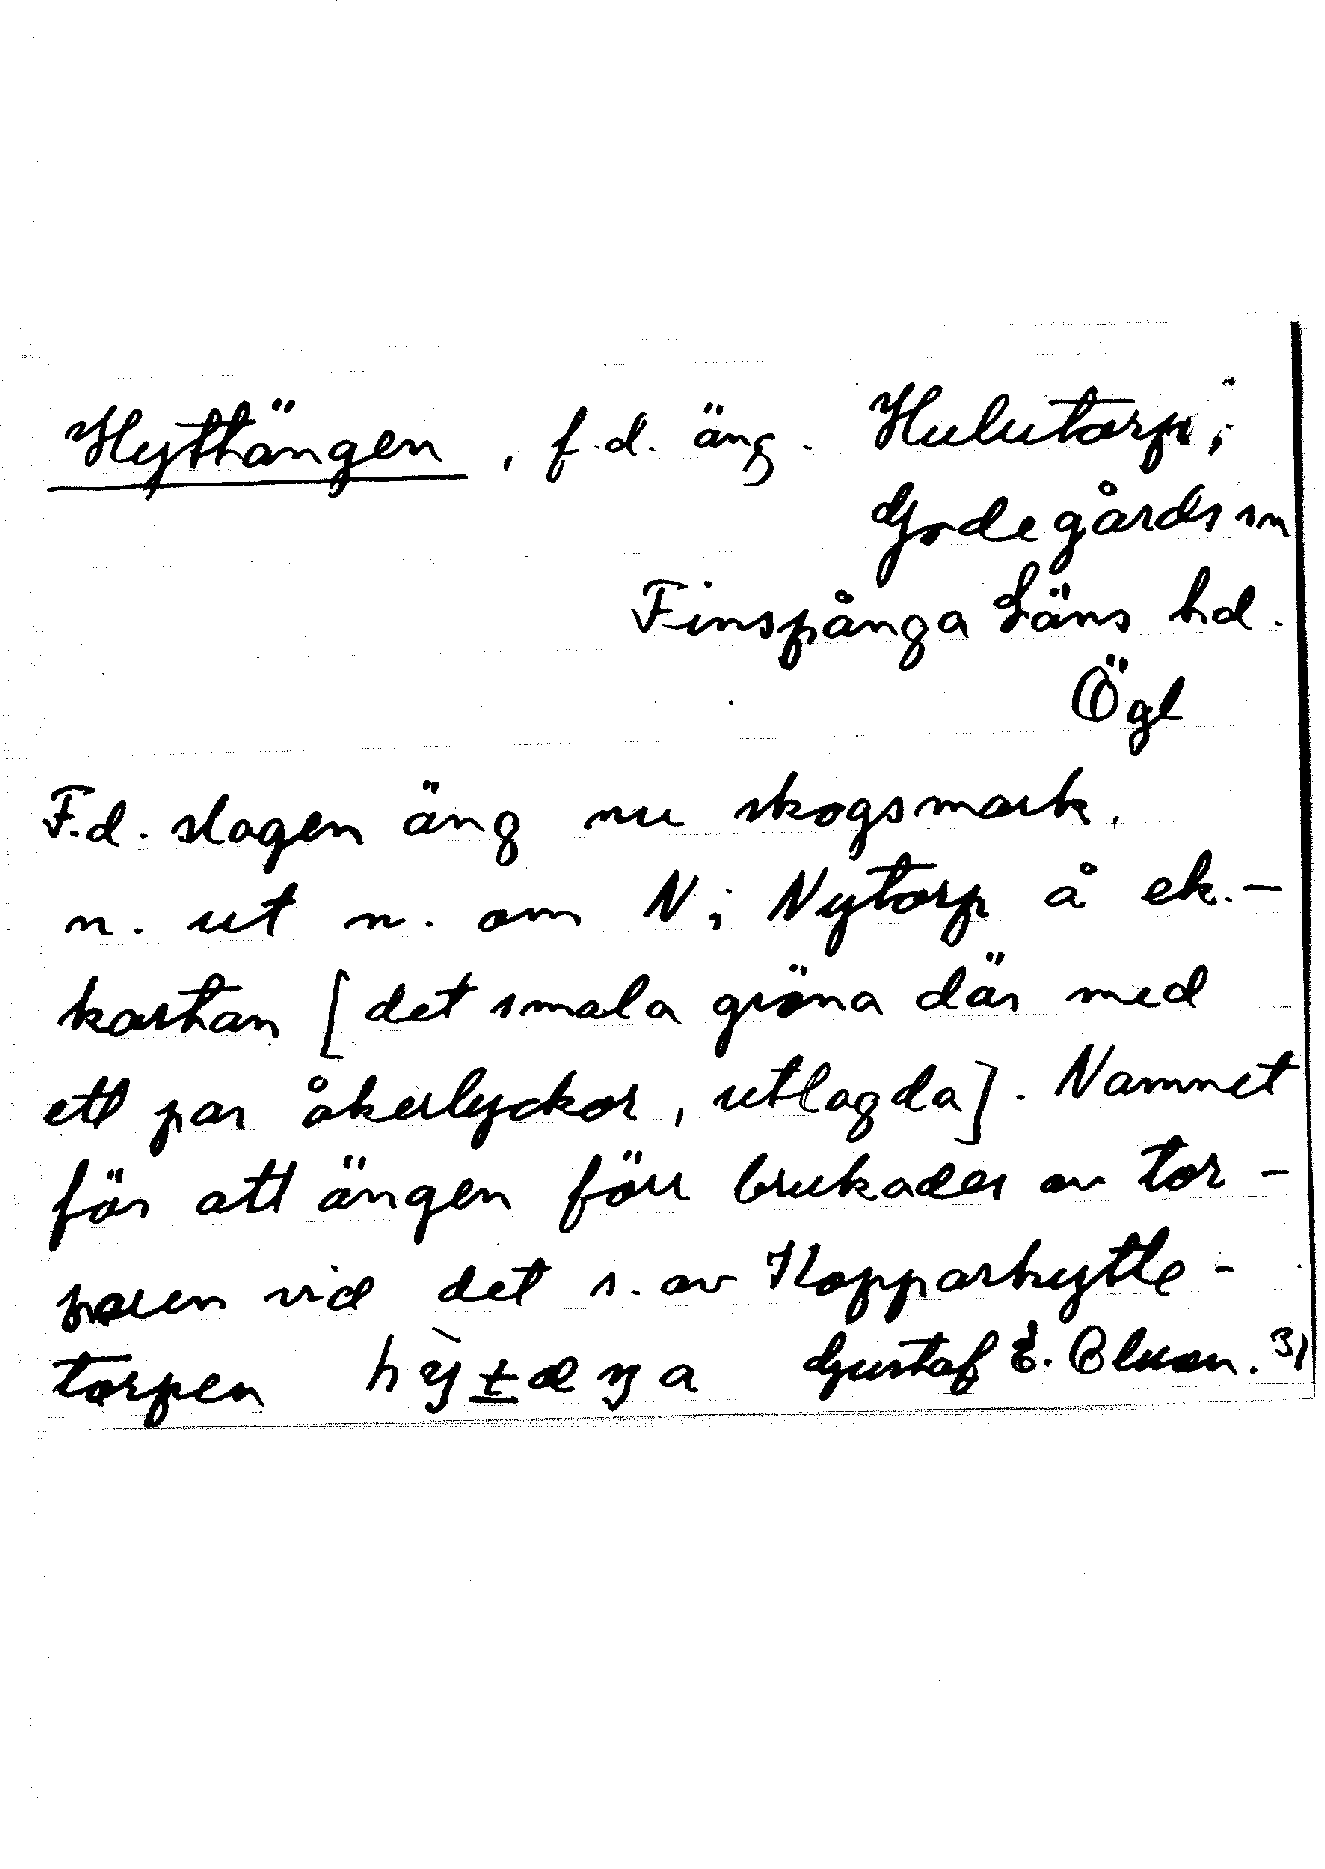 Hyttängen, f.d. äng. Hulutorp,
Godegårds sn
Finspånga Läns hd.
Ögl
F.d. slagen äng nu skogsmark.
n. ut n. om N i Nytorp å ek.-
kartan [det smala gröna där med
ett par åkerlyckor, utlagda]. Namnet
för att ängen förr brukades av tor-
paren vid det s. av Kopparhytte-
torpen Gustaf E. 31